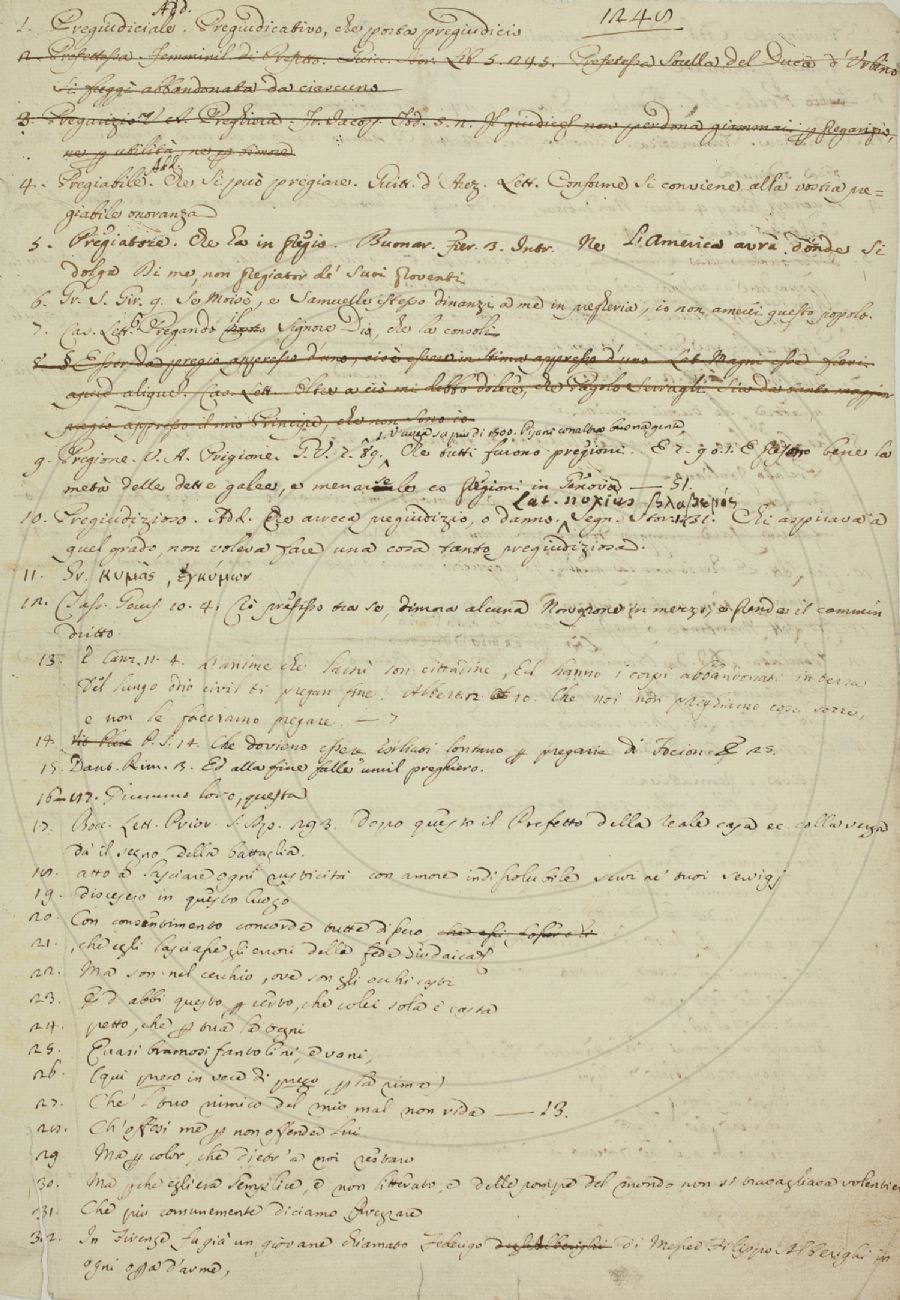 1248
Add.
1. Pregiudiciale. Pregiudicativo, che porta pregiudicio
2. Prefettessa Femminil di Prefetto. Lib. 5. 245. Prefetessa Sorella del Duca d'Urbino
si fuggì abbandonata da ciascuno
3. Pregarizio V. A. Preghiera. Fr. Jacop. Tod. 5. n. Il giudice non perdona giammai, ꝑ plegarizio,
ne ꝑ utilità, ne ꝑ timore
Add.
4. Pregiabile. Che si può pregiare. Guitt. d'Arez. Lett. Conforme si conviene alla vostra pre=
giabile onoranza
5. Pregiatore. Che ha in pregio. Buonar. Fier. 3. Intr. Ne L'America avrà donde si
dolga Di me, non pregiator de' suoi proventi
6. Gr. S. Gir. 9. Se Moisè, e Samuelle istesso dinanzi a me in pregheria, io non amerei questo popolo.
7. Cas. Lett. Pregando il Signore Dio, che la consoli
8. § Esser da pregio appresso d'uno, cioè essere in stima appresso d'uno Lat. Magni esse
apud aliquem. Cas. Lett. Oltre a ciò mi debbo dolere, che Sia da tanto maggior
pregio appresso il mio Principe, che non sono io
1. V'avea su più di 1500. Pisani con altra buona gente,
9. Pregione. V. A. Prigione. G. V. 7. 89. Che tutti furono pregioni. E 7. 90. 1. E presono bene la
metà delle dette galee, e menarle co pregioni in Genova — 51.
Lat. noxius βλαβερός
10. Pregiudizioso. Add. Che arreca pregiudizio, o danno. Segn. Stor. 131. Chi aspirava a
quel grado, non voleva fare una cosa tanto pregiudiziosa.
11. Gr. ἐγκώμιον
12. 10. 4. Ciò presesso tra se, dimora alcuna Non pone in mezzo, e prende il cammin
dritto.
13. E Canz. 11. 4. L'anime che lassù son cittadine, Ed hanno i corpi abbandonati in terra
Del lungo odio civil ti pregan fine. Che noi non preghiamo cose sozze,
e non le facciamo pregare. — 7
14. P. S. 14. Che dovieno essere lontano ꝑ pregaria di Focione 25.
15. Dant. Rim. 3. Ed alla fine falle umil preghiero.
16. Dicemmo loro, questa
17. Bocc. Lett. Prior. S. Ap. 293. Dopo questo il Prefetto della reale casa ec. colla verga
dà il segno della battaglia.
18. atto a lasciare ogni rusticità con amore indissolubile servi ne' tuoi servigj
19. diocesero in questo luogo
20. Con consentimento concorde tutte dissero
21. , che egli lasciasse gli errori della fede Giudaica
22. Ma son nel cerchio, ove son gli occhi casti
23. E d'abbi questo ꝑ certo, che colei sola è casta
24. petto, che ꝑ tua la tegni
25. Quasi bramosi fantolini, e vani,
26. (qui prego in vece di priego ꝑ la rima)
27. Che' l tuo nimico del mio mal non rida — 13.
28. Ch'offesi me ꝑ non offender lui
29 Ma ꝑ color, che dietr'a noi restaro
30. Ma ꝑche egli era semplice, e non litterato, e delle pompe del mondo non si travagliava volentieri
31. Che più comunemente diciamo Prezzare
32. In Firenze fu già un giovane chiamato Federigo degli Alberighi di Messer Filippo Alberighi in
ogni opra d'arme,